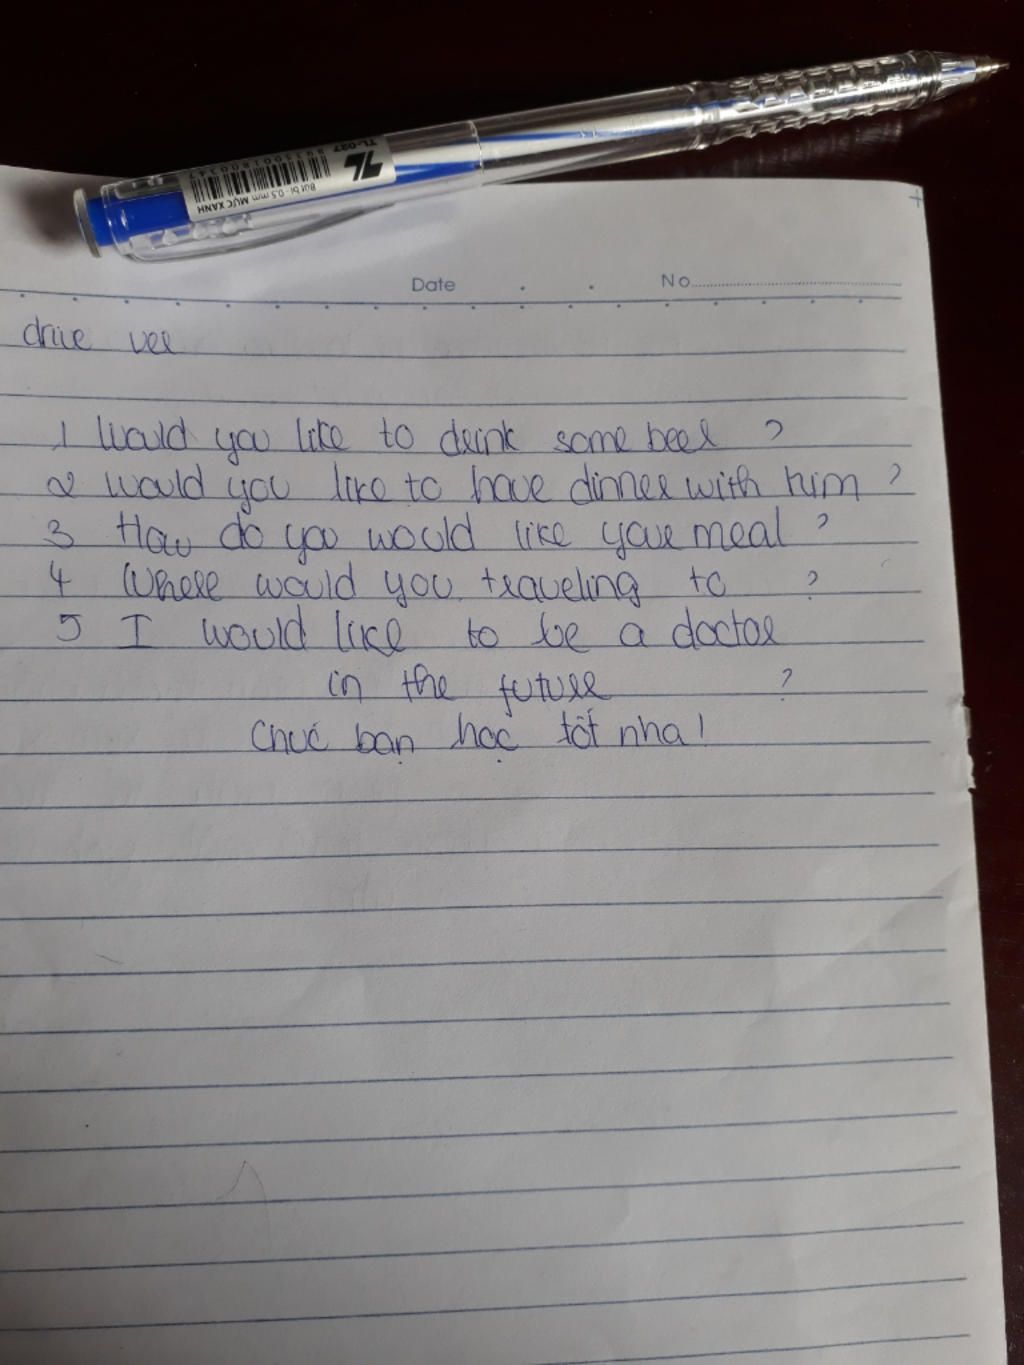 TL-027
8935001800347
Bút bi - 0.5 mm MỰC XANH
Date No
1 Would you like to drink some beer ?
2 Would you like to have dinner with him ?
3 How do you would like your meal ?
4 Where would you traveling to ?
5 I would like to be a doctor
in the future ?
Chúc bạn học tốt nha!